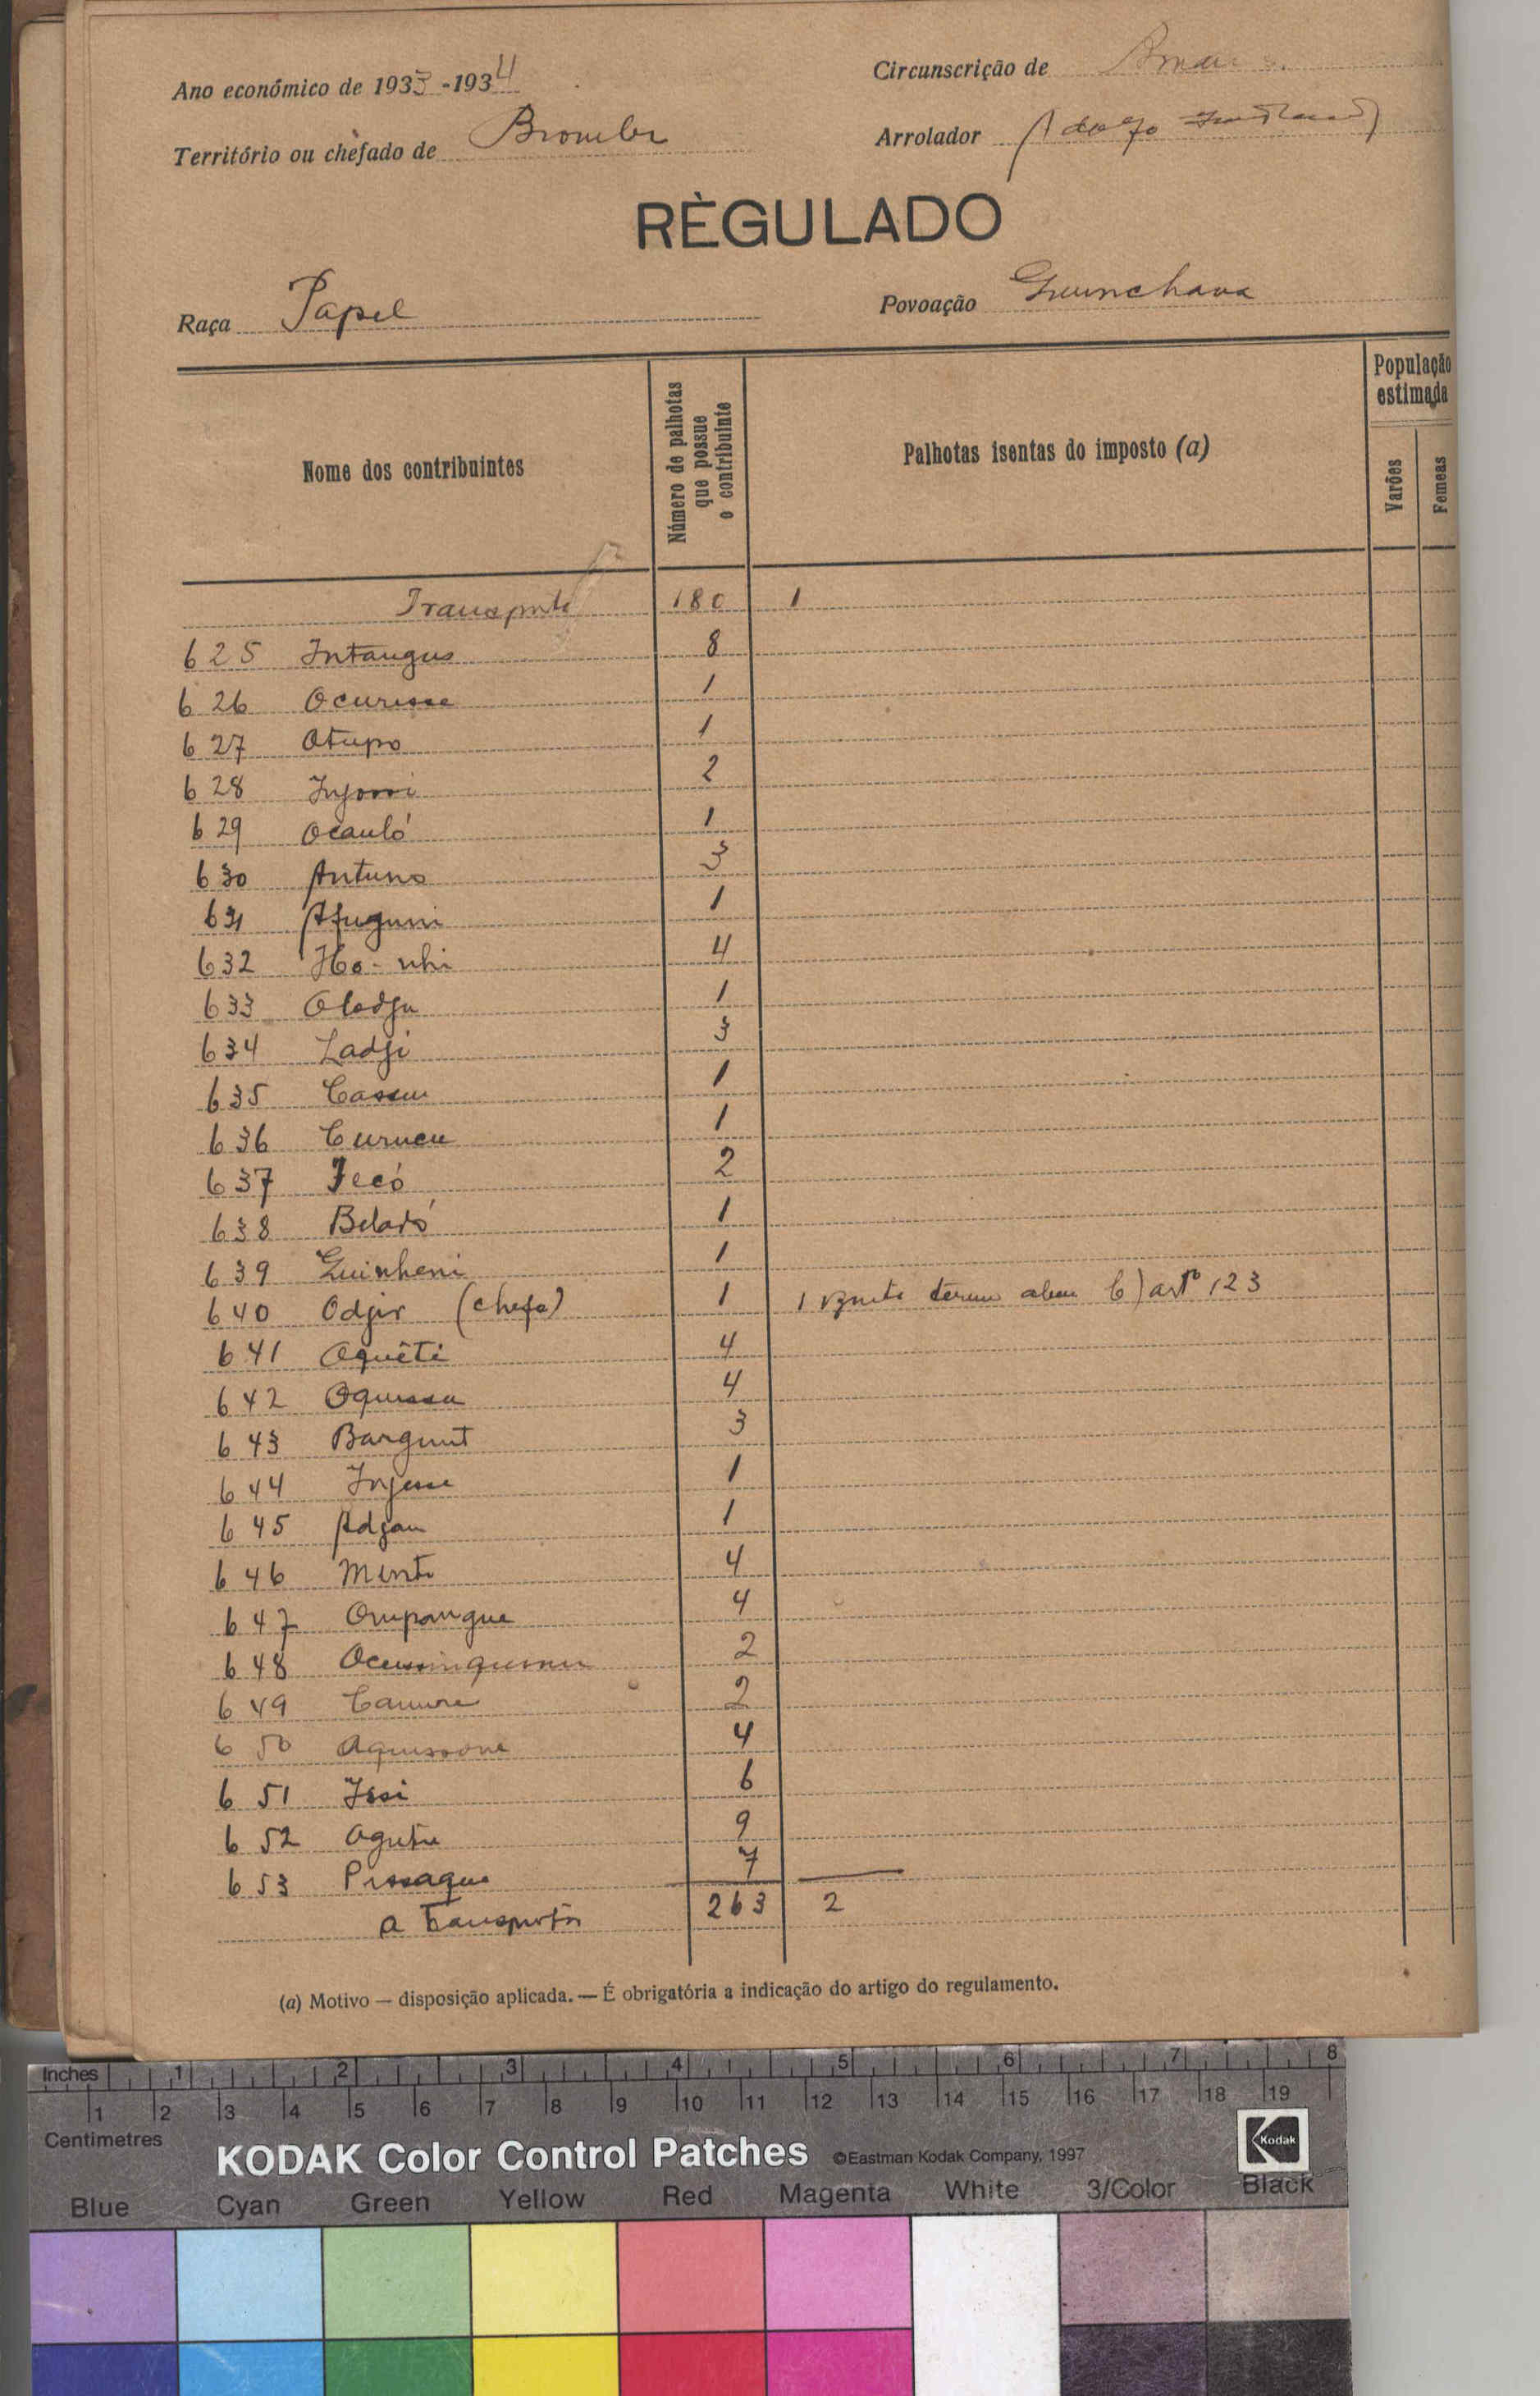 Ano económico de 1933-1934
Circunscrição de
Território ou chèfado de
Arrolador Adolfo
RÈGULADO
Raça Papel
Povoação Guinchava
Nome dos contribuintes
Número de palhotas que possue o contribuinte
Palhotas isentas do imposto (a)
População estimada
Varões
Femeas
Transporte 180 1
625 Intangus 8
626 Ocurisse 1
627 Otupo 1
628 2
629 Ocauló 1
630 Antuno 3
631 1
632 Ho-nhi 4
633 Oladju 1
634 Ladji 3
635 Cassu 1
636 Curucu 1
637 Jecó 2
638 1
639 Guinheni 1
640 Odjir (chefe) 1 1 art.º 123
641 Oquêti 4
642 Oquissa 4
643 3
644 Injesse 1
645 Adjan 1
646 4
647 Ompangue 4
648 2
649 2
650 4
651 Issi 6
652 9
653 Pissaque 7
a Transportar 263 2
(a) Motivo — disposição aplicada. — É obrigatória a indicação do artigo do regulamento.
Inches 1 2 3 4 5 6 7 8
1 2 3 4 5 6 7 8 9 10 11 12 13 14 15 16 17 18 19
Centimetres
KODAK Color Control Patches ©Eastman Kodak Company, 1997 Kodak
Blue Cyan Green Yellow Red Magenta White 3/Color Black